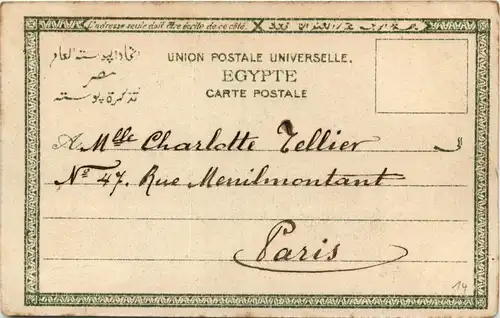 L'adresse seule doit être écrite de ce côté.
اتحاد البوسته العام
مصر
تذكرة بوسته
UNION POSTALE UNIVERSELLE.
EGYPTE
CARTE POSTALE
A Mlle Charlotte Tellier
Nº 47. Rue Menilmontant
Paris
14